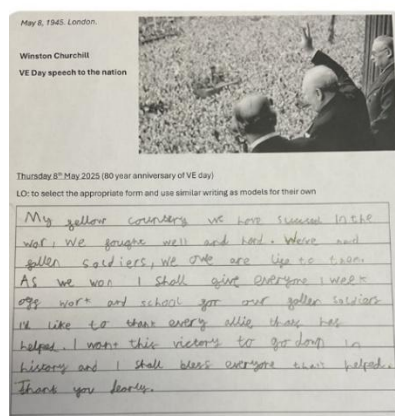 May 8, 1945. London.
Winston Churchill
VE Day speech to the nation
Thursday 8th May 2025 (80 year anniversary of VE day)
LO: to select the appropriate form and use similar writing as models for their own
My fellow country we have succeed in the
war, we fought well and hard. We've had
fallen soldiers, we owe are life to them.
As we won I shall give everyone 1 week
off work and school for our fallen soldiers
I'd like to thank every allie thats has
helped. I want this victory to go down in
history and I shall bless everyone that helped.
Thank you dearly.